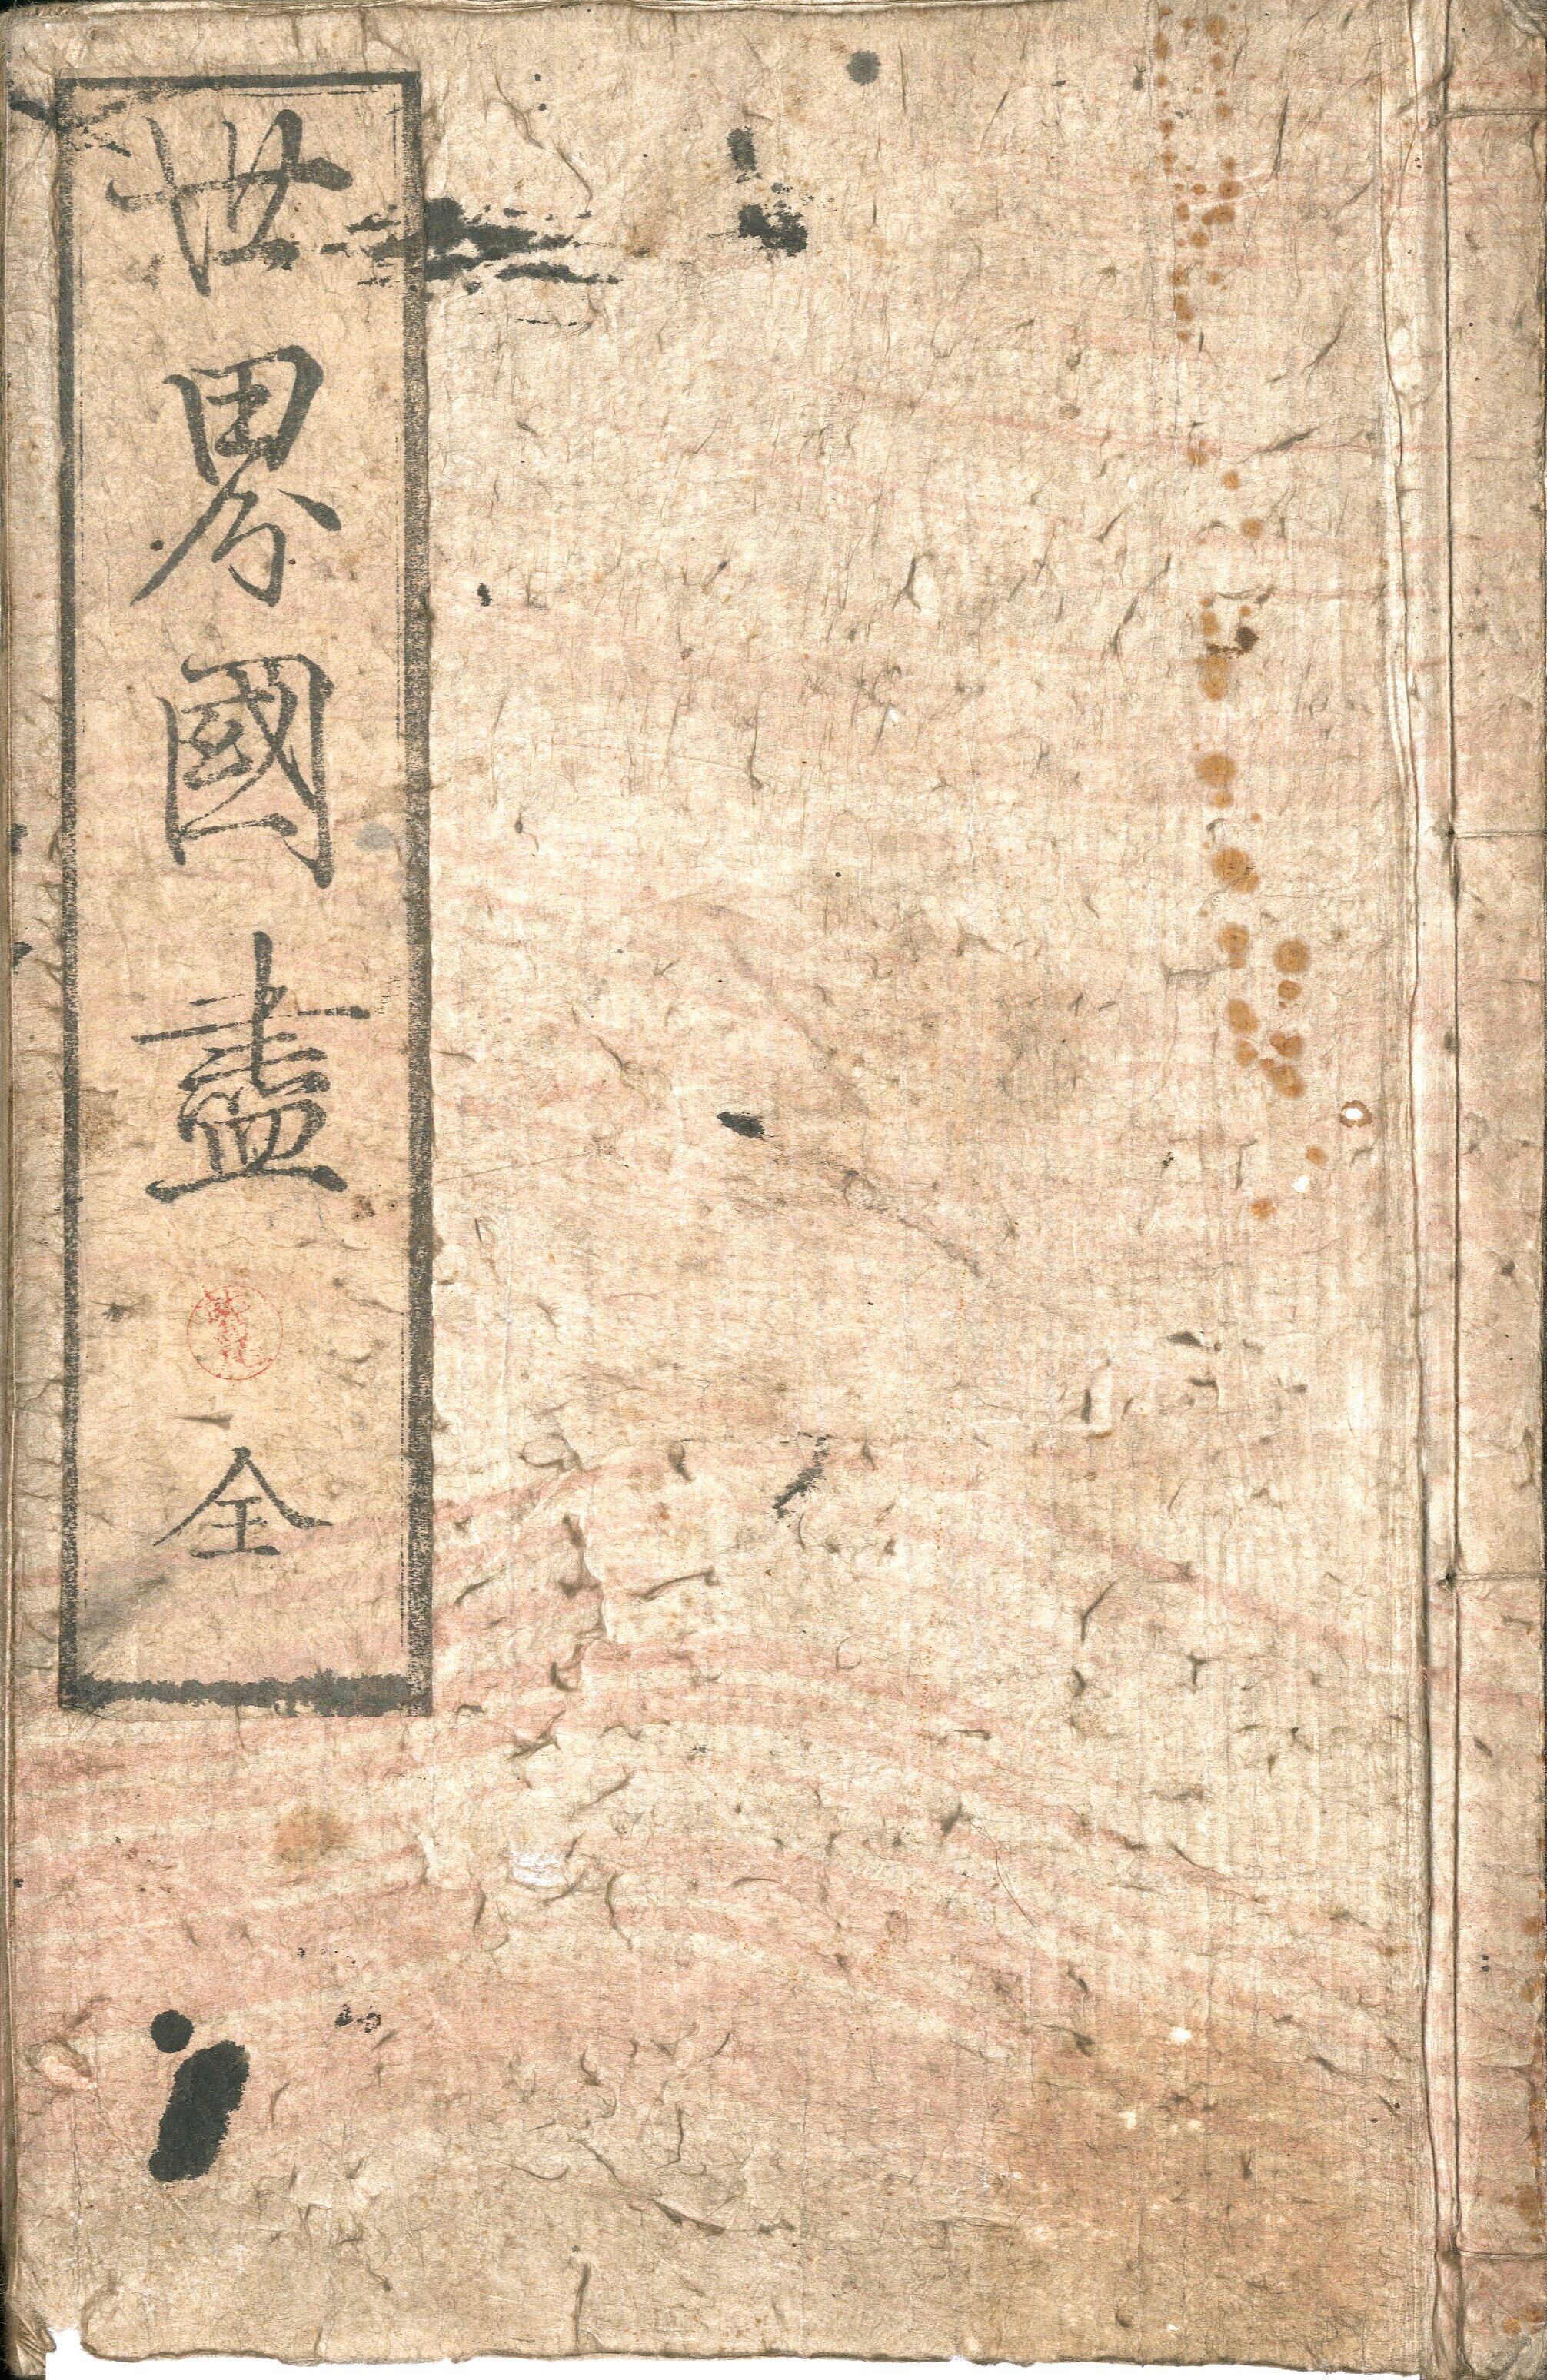 世界國盡
全